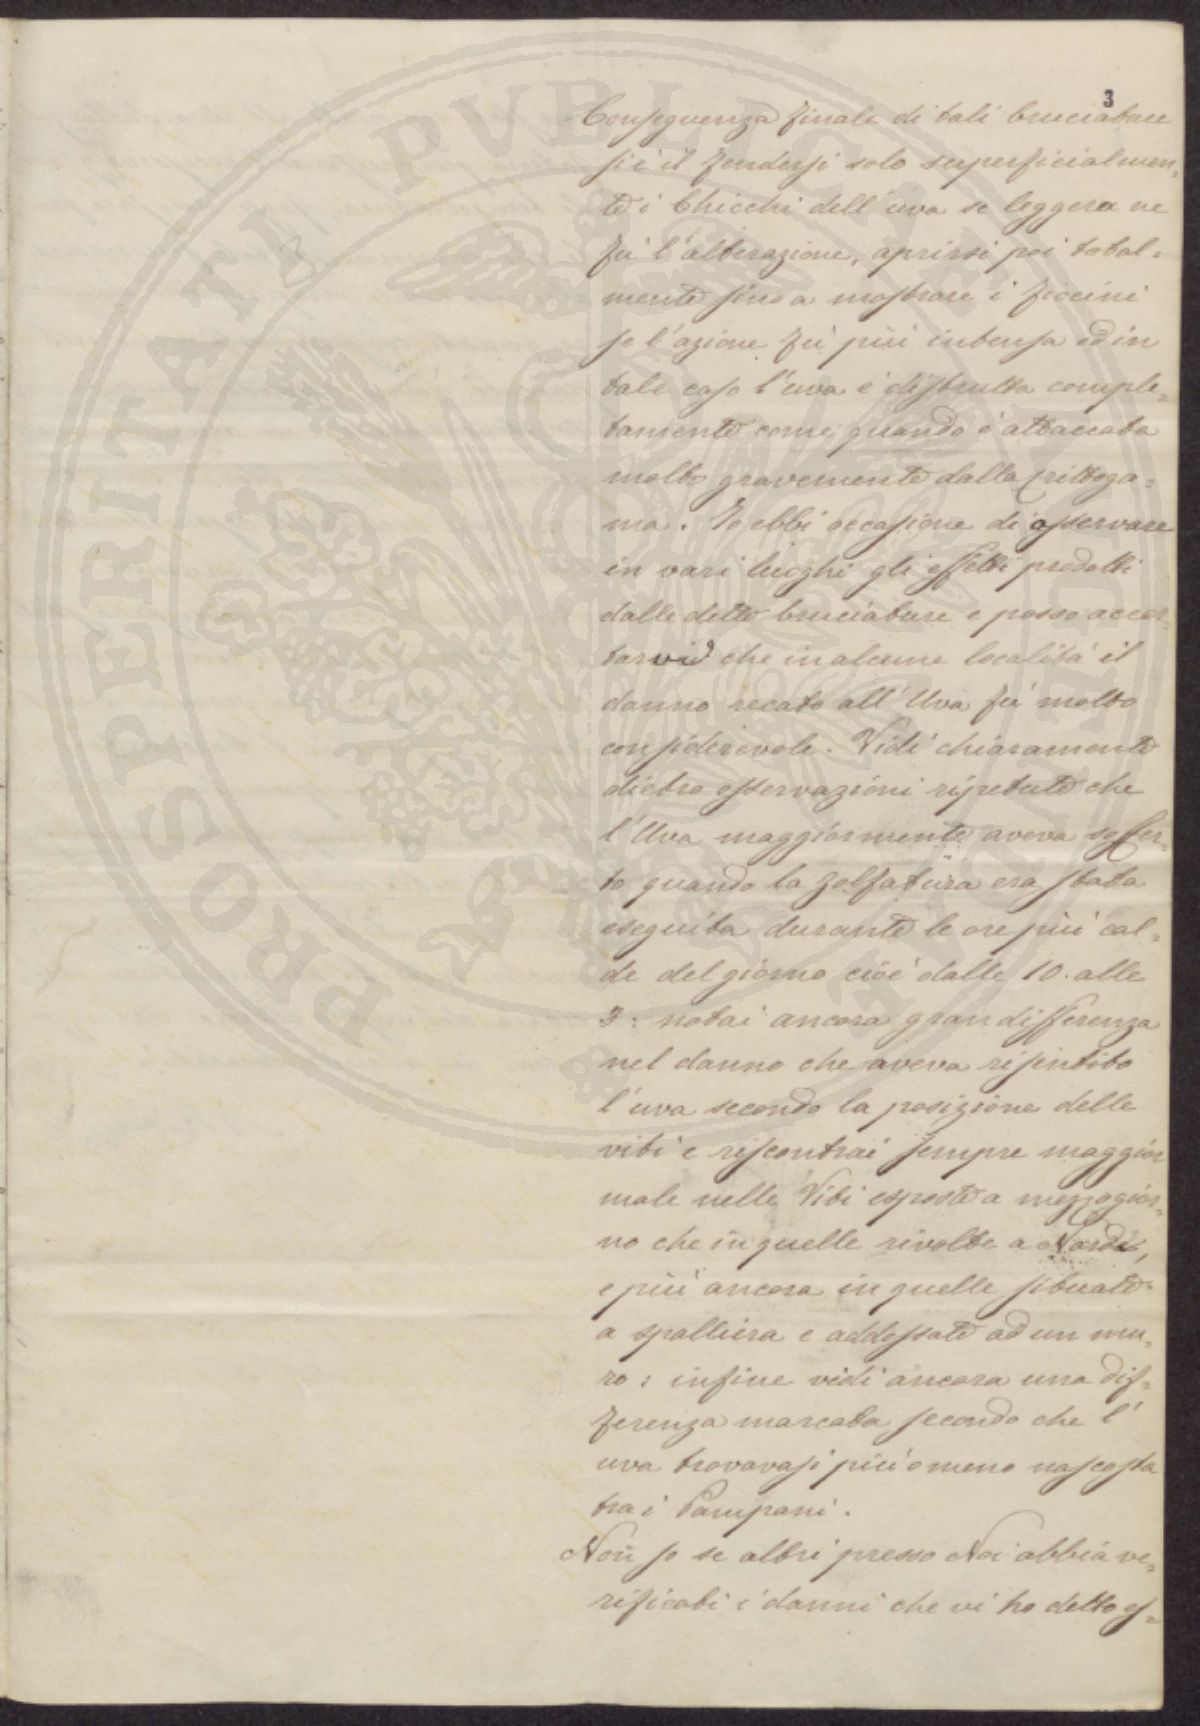 3
Conseguenza finale di tali bruciature
si è il fendersi solo superficialmen=
te i Chicchi dell'uva se leggera ne
fù l'alterazione, aprirsi poi total=
mente sino a mostrare i fiocini
se l'azione fù più intensa ed in
tale caso l'uva è distrutta comple=
tamente come quando è attaccata
molto gravemente dalla crittoga=
ma. Io ebbi occasione di osservare
in vari luoghi gli effetti prodotti
dalle dette bruciature e posso accer=
tarvi che in alcune località il
danno recato all'Uva fù molto
considerevole. Vidi chiaramente
dietro osservazioni ripetute che
l'Uva maggiormente aveva soffer=
to quando la zolfatura era stata
eseguita durante le ore più cal=
de del giorno cioè dalle 10. alle
3: notai ancora gran differenza
nel danno che aveva risentito
l'uva secondo la posizione delle
viti e riscontrai sempre maggior
male nelle Viti esposte a mezzogior=
no che in quelle rivolte a Nord,
e più ancora in quelle situate
a spalliera e addossate ad un mu=
ro: infine vidi ancora una dif=
ferenza marcata secondo che l'
uva trovavasi più o meno nascosta
tra i Pampani.
Non so se altri presso Noi abbia ve=
rificati i danni che vi ho detto es=
PROSPERITATI PVBLICAE